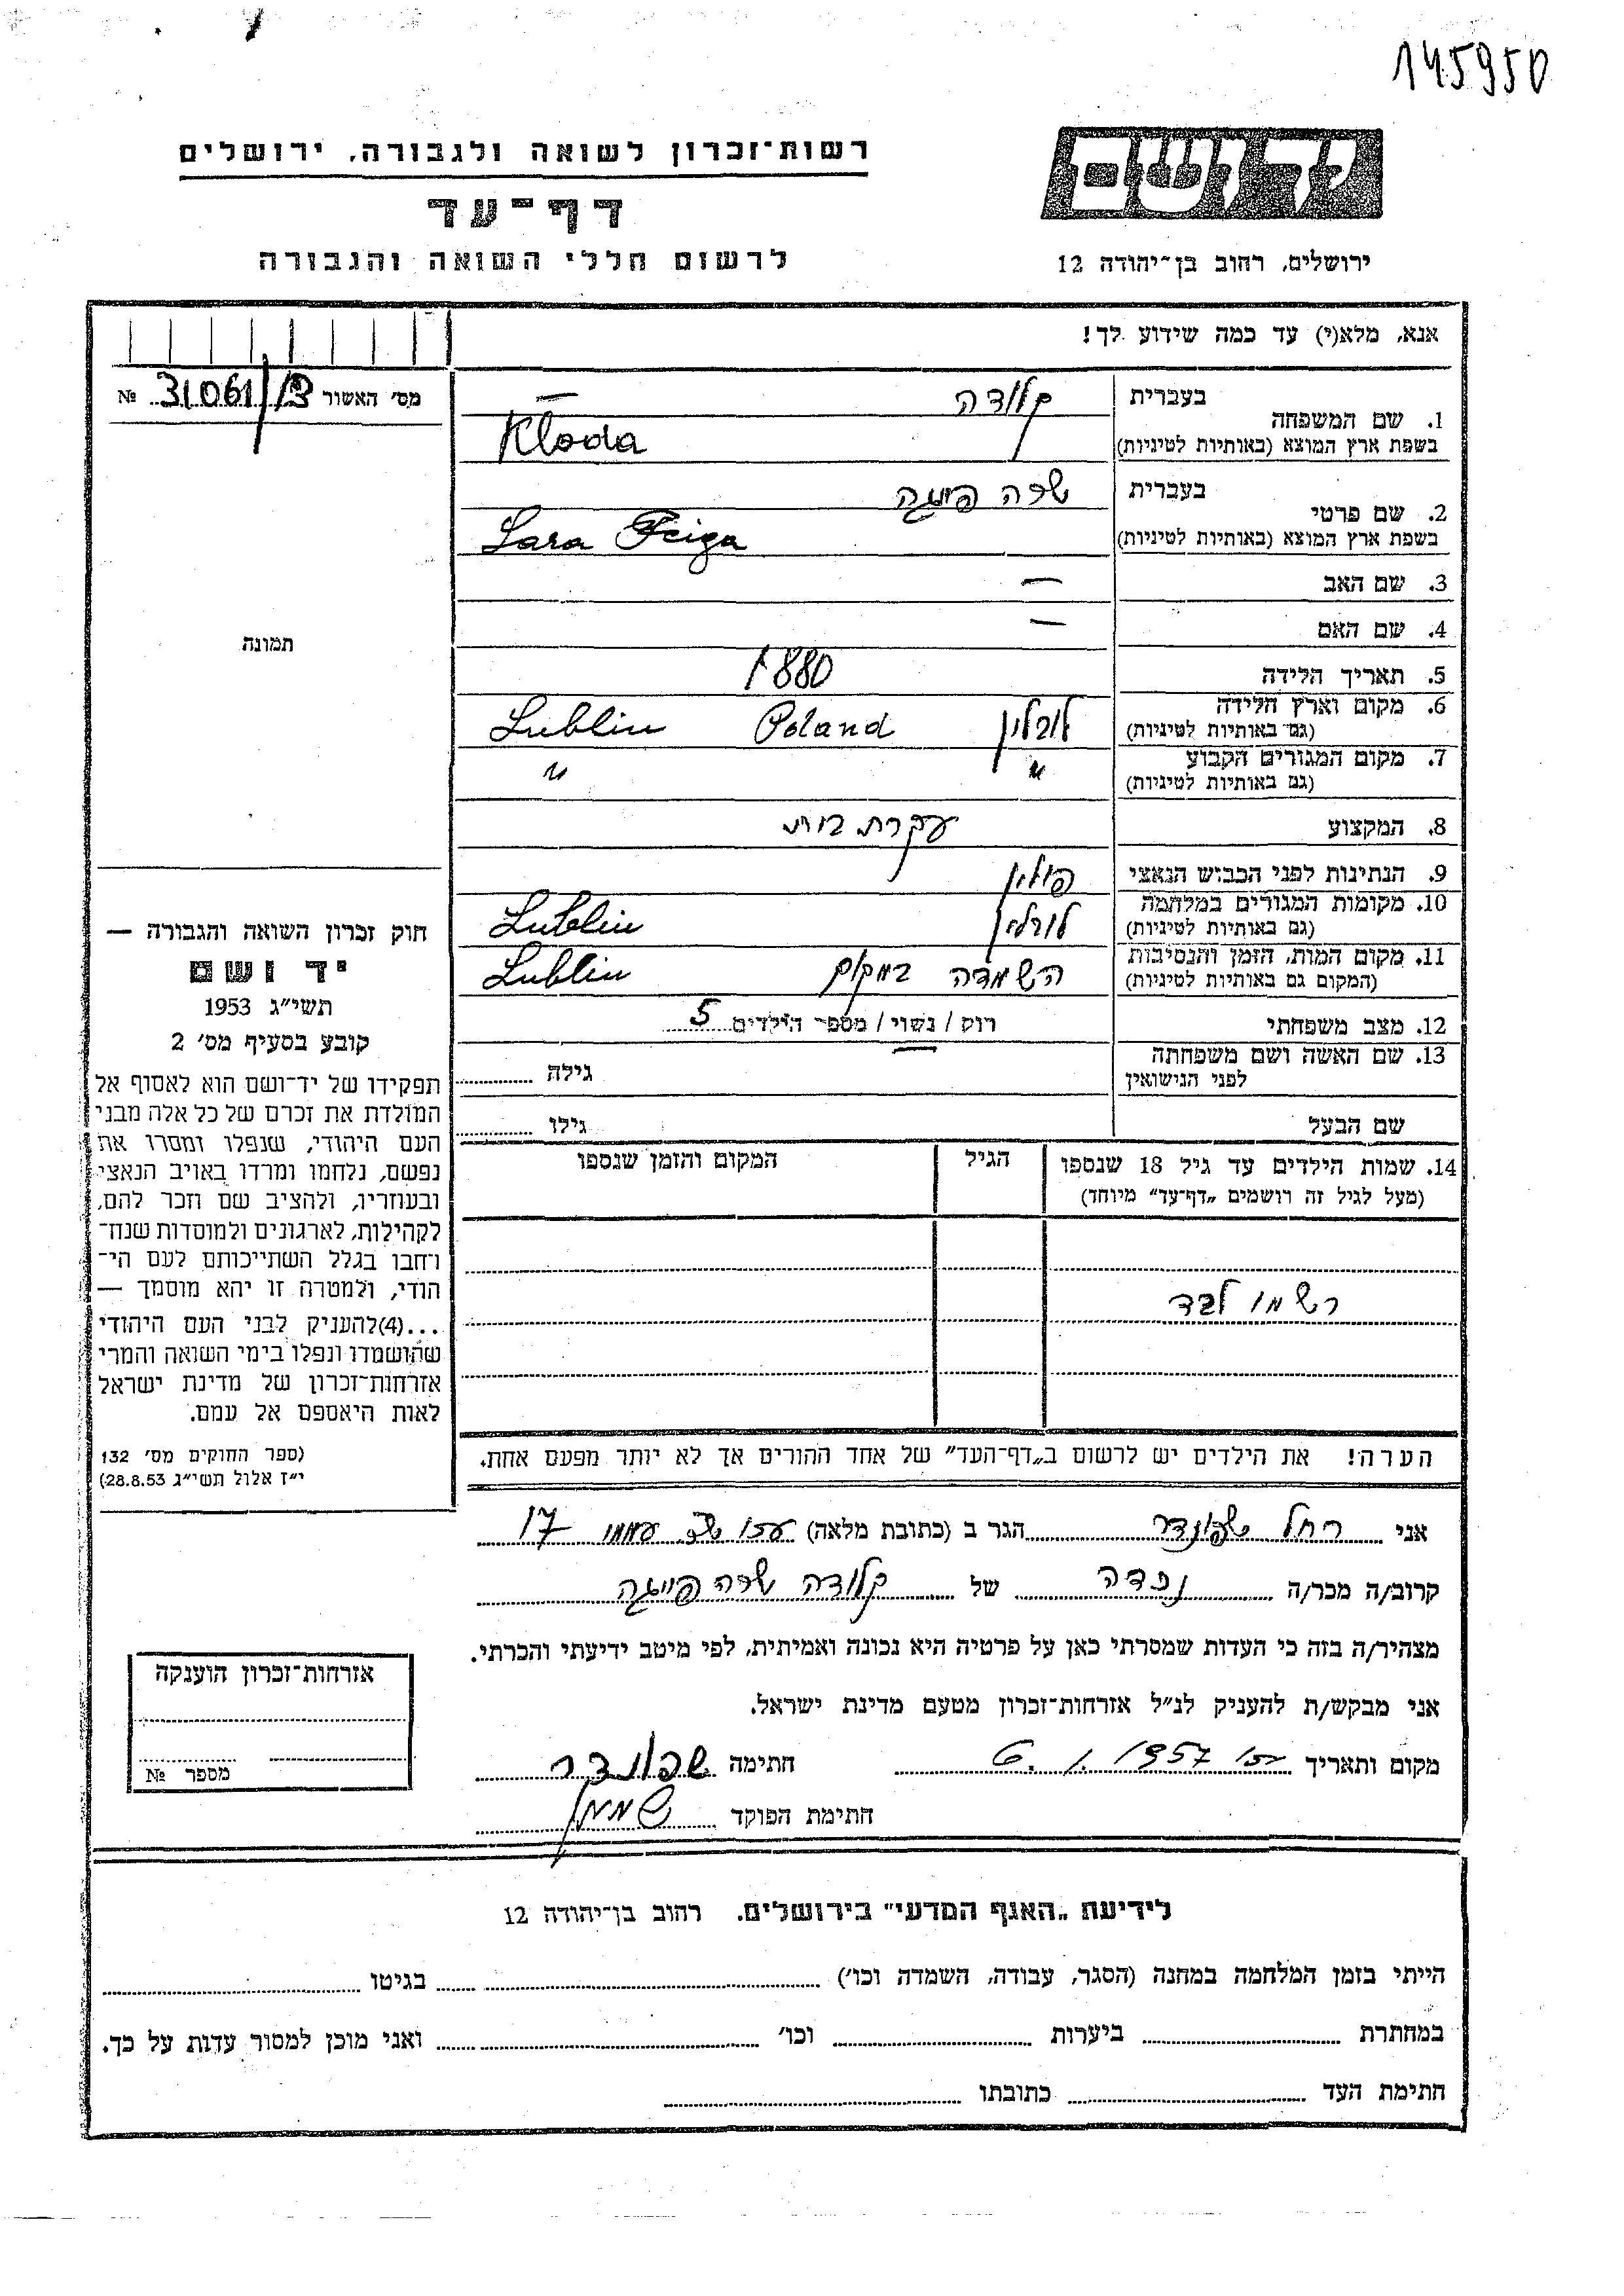 145950
יד ושם
ירושלים, רחוב בן־יהודה 12
רשות־זכרון לשואה ולגבורה, ירושלים
דף־עד
לרשום חללי השואה והגבורה
אנא, מלא(י) עד כמה שידוע לך!
מס׳ האשור 31061/ №
1. שם המשפחה
בעברית קלודה
בשפת ארץ המוצא (באותיות לטיניות) Kloda
2. שם פרטי
בעברית שרה פייגה
בשפת ארץ המוצא (באותיות לטיניות) Sara Feiga
3. שם האב —
4. שם האם —
5. תאריך הלידה 1880
6. מקום וארץ הלידה לובלין Poland Lublin
(גם באותיות לטיניות)
7. מקום המגורים הקבוע " "
(גם באותיות לטיניות)
8. המקצוע עקרת בית
9. הנתינות לפני הכבוש הנאצי פולין
10. מקומות המגורים במלחמה לובלין Lublin
(גם באותיות לטיניות)
11. מקום המות, הזמן והנסיבות השמדה במקום Lublin
(המקום גם באותיות לטיניות)
12. מצב משפחתי רוק / נשוי / מספר הילדים 5
13. שם האשה ושם משפחתה — גילה
לפני הנישואין
שם הבעל גילו
14. שמות הילדים עד גיל 18 שנספו הגיל המקום והזמן שנספו
(מעל לגיל זה רושמים „דף־עד״ מיוחד)
רשמו לבד
הערה! את הילדים יש לרשום ב„דף־העד״ של אחד ההורים אך לא יותר מפעם אחת.
תמונה
חוק זכרון השואה והגבורה —
יד ושם
תשי״ג 1953
קובע בסעיף מס׳ 2
תפקידו של יד־ושם הוא לאסוף אל
המולדת את זכרם של כל אלה מבני
העם היהודי, שנפלו ומסרו את
נפשם, נלחמו ומרדו באויב הנאצי
ובעוזריו, ולהציב שם וזכר להם,
לקהילות, לארגונים ולמוסדות שנח־
רחבו בגלל השתייכותם לעם הי־
הודי, ולמטרה זו יהא מוסמך —
...(4)להעניק לבני העם היהודי
שהושמדו ונפלו בימי השואה והמרי
אזרחות־זכרון של מדינת ישראל
לאות היאספם אל עמם.
(ספר החוקים מס׳ 132
י״ז אלול תשי״ג 28.8.53)
אני רחל הגר ב (כתובת מלאה) 17
קרוב/ה מכר/ה נכדה של קלודה שרה פייגה
מצהיר/ה בזה כי העדות שמסרתי כאן על פרטיה היא נכונה ואמיתית, לפי מיטב ידיעתי והכרתי.
אני מבקש/ת להעניק לנ״ל אזרחות־זכרון מטעם מדינת ישראל.
מקום ותאריך 6.1.1957 חתימה
חתימת הפוקד
אזרחות־זכרון הוענקה
מספר №
לידיעת „האגף המדעי״ בירושלים. רחוב בן־יהודה 12
הייתי בזמן המלחמה במחנה (הסגר, עבודה, השמדה וכו׳) בגיטו
במחתרת ביערות וכו׳ ואני מוכן למסור עדות על כך.
חתימת העד כתובתו